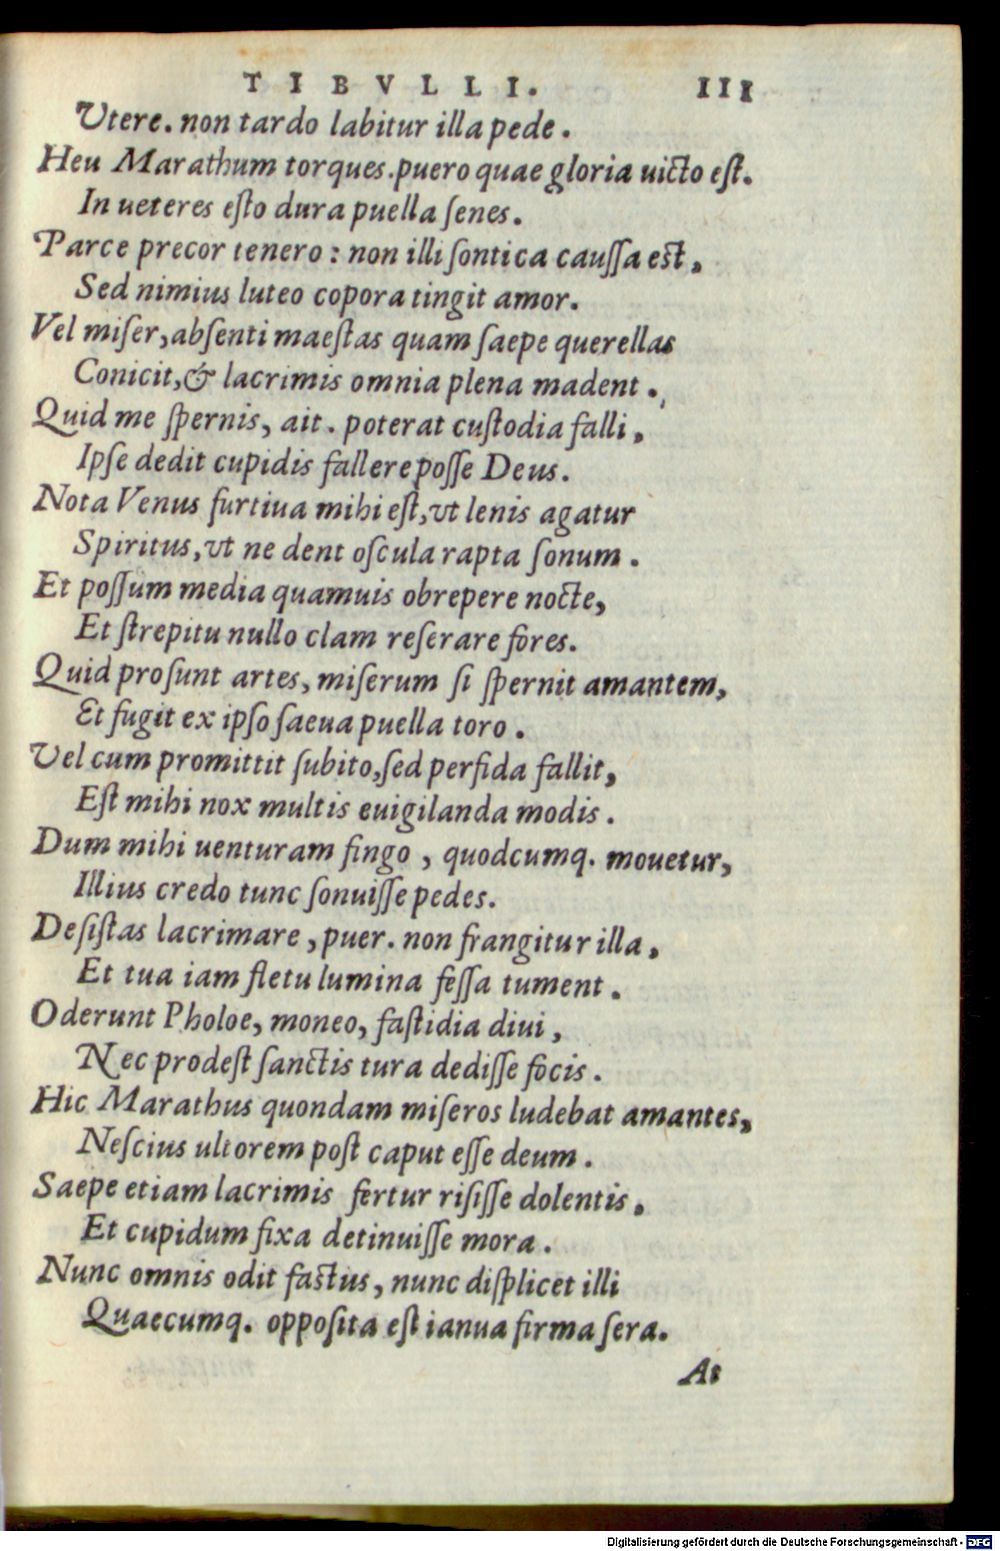 TIBVLLI. III
Vtere. non tardo labitur illa pede.
Heu Marathum torques. puero quae gloria uicto est.
In ueteres esto dura puella senes.
Parce precor tenero: non illi sontica caussa est,
Sed nimius luteo copora tingit amor.
Vel miser, absenti maestas quam saepe querellas
Conicit, & lacrimis omnia plena madent.
Quid me spernis, ait. poterat custodia falli,
Ipse dedit cupidis fallere posse Deus.
Nota Venus furtiua mihi est, vt lenis agatur
Spiritus, vt ne dent oscula rapta sonum.
Et possum media quamuis obrepere nocte,
Et strepitu nullo clam reserare fores.
Quid prosunt artes, miserum si spernit amantem,
Et fugit ex ipso saeua puella toro.
Vel cum promittit subito, sed perfida fallit,
Est mihi nox multis euigilanda modis.
Dum mihi uenturam fingo, quodcumq. mouetur,
Illius credo tunc sonuisse pedes.
Desistas lacrimare, puer. non frangitur illa,
Et tua iam fletu lumina fessa tument.
Oderunt Pholoe, moneo, fastidia diui,
Nec prodest sanctis tura dedisse focis.
Hic Marathus quondam miseros ludebat amantes,
Nescius ultorem post caput esse deum.
Saepe etiam lacrimis fertur risisse dolentis,
Et cupidum fixa detinuisse mora.
Nunc omnis odit fastus, nunc displicet illi
Quaecumq. opposita est ianua firma sera.
At
Digitalisierung gefördert durch die Deutsche Forschungsgemeinschaft - DFG